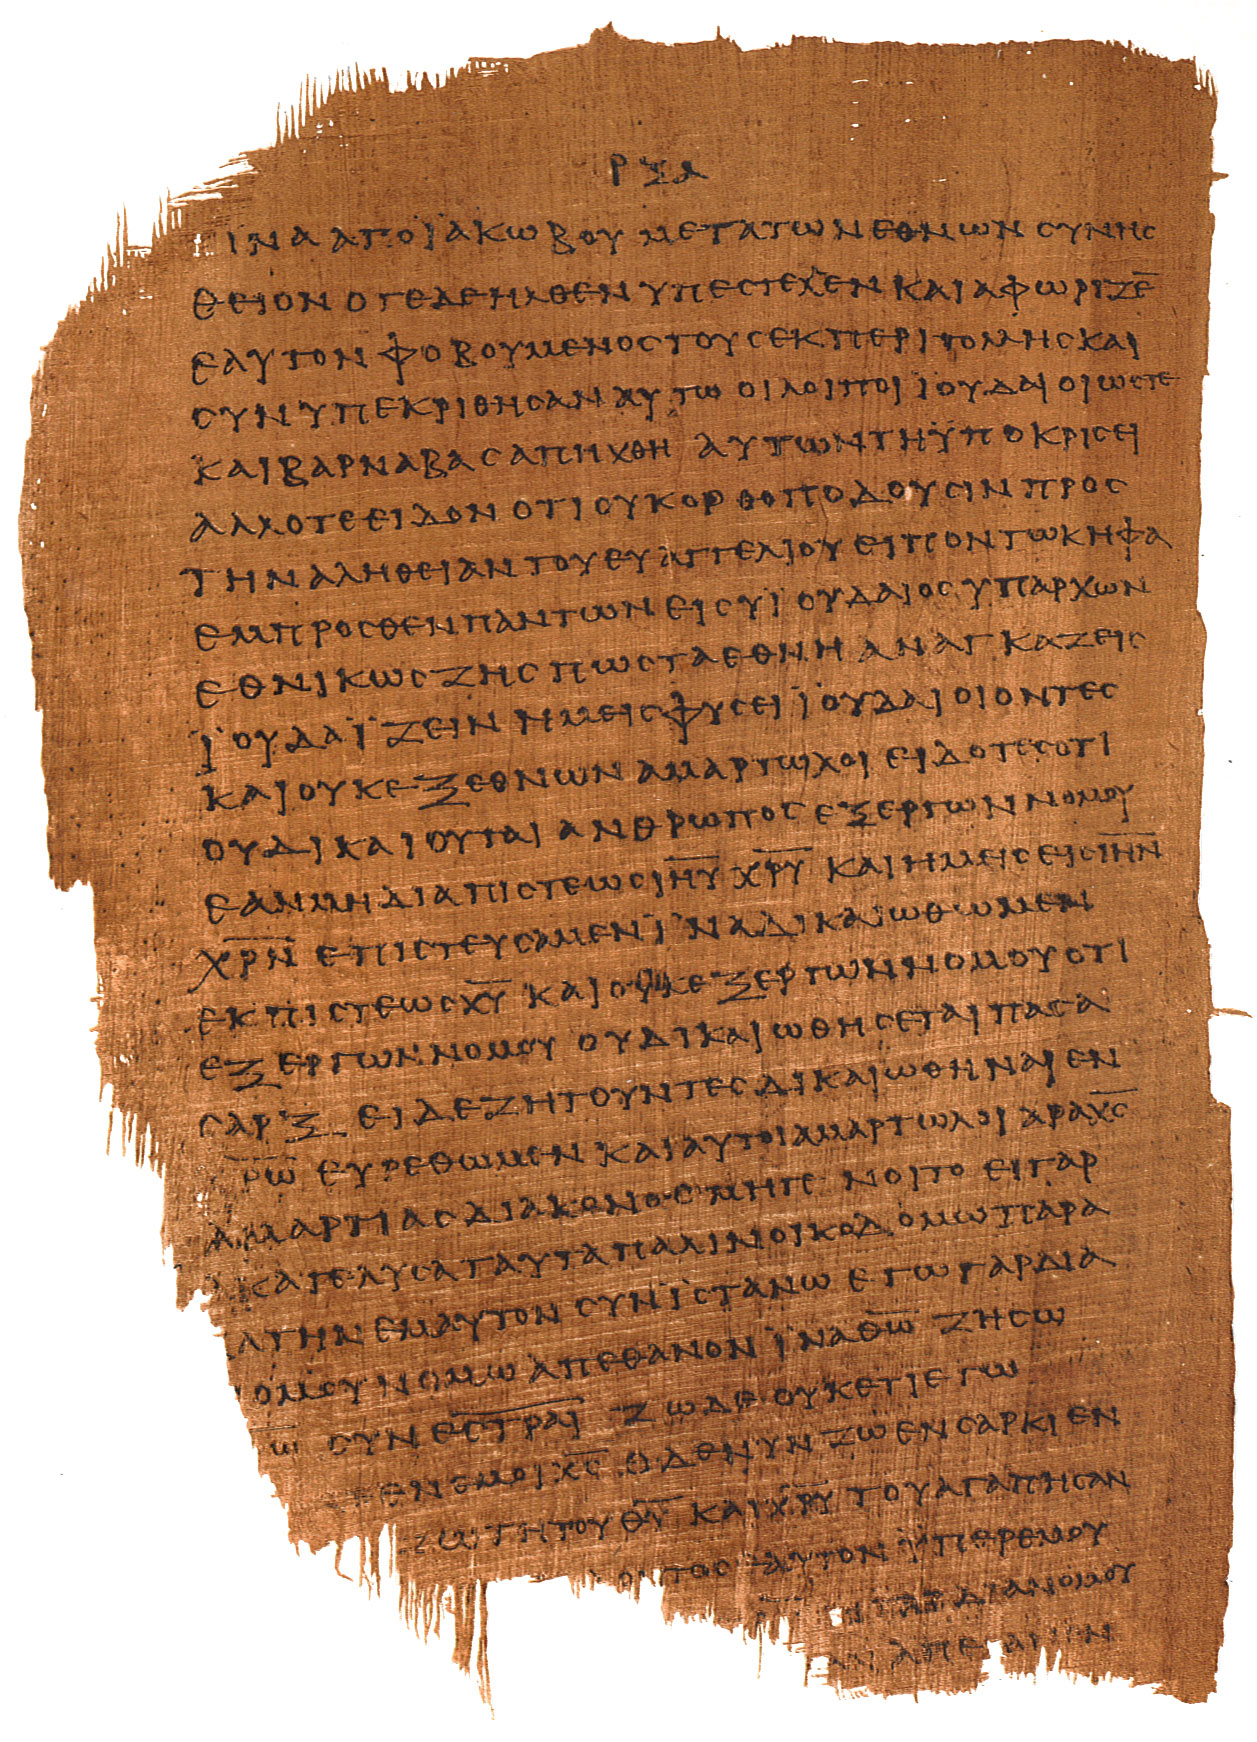 ΡΞΑ
ΤΙΝΑ ΑΠΟ ΪΑΚΩΒΟΥ ΜΕΤΑ ΤΩΝ ΕΘΝΩΝ ΣΥΝΗΣ
ΘΕΙΟΝ ΟΤΕ ΔΕ ΗΛΘΕΝ ΥΠΕΣΤΕΛΛΕΝ ΚΑΙ ΑΦΩΡΙΖΕ̅
ΕΑΥΤΟΝ ΦΟΒΟΥΜΕΝΟΣ ΤΟΥΣ ΕΚ ΠΕΡΙΤΟΜΗΣ ΚΑΙ
ΣΥΝΫΠΕΚΡΙΘΗΣΑΝ ΑΥΤΩ ΟΙ ΛΟΙΠΟΙ ΪΟΥΔΑΙΟΙ ΩΣΤΕ
ΚΑΙ ΒΑΡΝΑΒΑΣ ΑΠΗΧΘΗ ΑΥΤΩΝ ΤΗ ΫΠΟΚΡΙΣΕΙ
ΑΛΛ ΟΤΕ ΕΙΔΟΝ ΟΤΙ ΟΥΚ ΟΡΘΟΠΟΔΟΥΣΙΝ ΠΡΟΣ
ΤΗΝ ΑΛΗΘΕΙΑΝ ΤΟΥ ΕΥΑΓΓΕΛΙΟΥ ΕΙΠΟΝ ΤΩ ΚΗΦΑ
ΕΜΠΡΟΣΘΕΝ ΠΑΝΤΩΝ ΕΙ ΣΥ ΪΟΥΔΑΙΟΣ ΥΠΑΡΧΩΝ
ΕΘΝΙΚΩΣ ΖΗΣ ΠΩΣ ΤΑ ΕΘΝΗ ΑΝΑΓΚΑΖΕΙΣ
ΪΟΥΔΑΪΖΕΙΝ ΗΜΕΙΣ ΦΥΣΕΙ ΪΟΥΔΑΙΟΙ ΟΝΤΕΣ
ΚΑΙ ΟΥΚ ΕΞ ΕΘΝΩΝ ΑΜΑΡΤΩΛΟΙ ΕΙΔΟΤΕΣ ΟΤΙ
ΟΥ ΔΙΚΑΙΟΥΤΑΙ ΑΝΘΡΩΠΟΣ ΕΞ ΕΡΓΩΝ ΝΟΜΟΥ
ΕΑΝ ΜΗ ΔΙΑ ΠΙΣΤΕΩΣ Ι̅Η̅Υ̅ Χ̅Ρ̅Υ̅ ΚΑΙ ΗΜΕΙΣ ΕΙΣ Ι̅Η̅Ν̅
Χ̅Ρ̅Ν̅ ΕΠΙΣΤΕΥΣΑΜΕΝ ΪΝΑ ΔΙΚΑΙΩΘΩΜΕΝ
ΕΚ ΠΙΣΤΕΩΣ Χ̅Υ̅ ΚΑΙ ΟΥΚ ΕΞ ΕΡΓΩΝ ΝΟΜΟΥ ΟΤΙ
ΕΞ ΕΡΓΩΝ ΝΟΜΟΥ ΟΥ ΔΙΚΑΙΩΘΗΣΕΤΑΙ ΠΑΣΑ
ΣΑΡΞ ΕΙ ΔΕ ΖΗΤΟΥΝΤΕΣ ΔΙΚΑΙΩΘΗΝΑΙ ΕΝ
Ρ̅Ω̅ ΕΥΡΕΘΩΜΕΝ ΚΑΙ ΑΥΤΟΙ ΑΜΑΡΤΩΛΟΙ ΑΡΑ Χ̅Σ̅
ΑΜΑΡΤΙΑΣ ΔΙΑΚΟΝΟΣ ΜΗ ΓΕΝΟΙΤΟ ΕΙ ΓΑΡ
Α ΚΑΤΕΛΥΣΑ ΤΑΥΤΑ ΠΑΛΙΝ ΟΙΚΟΔΟΜΩ ΠΑΡΑ
ΑΤΗΝ ΕΜΑΥΤΟΝ ΣΥΝΪΣΤΑΝΩ ΕΓΩ ΓΑΡ ΔΙΑ
ΟΜΟΥ ΝΟΜΩ ΑΠΕΘΑΝΟΝ ΪΝΑ Θ̅Ω̅ ΖΗΣΩ
Ω̅ ΣΥΝΕΣ̅Τ̅Ρ̅Α̅Ι̅ ΖΩ ΔΕ ΟΥΚΕΤΙ ΕΓΩ
ΕΝ ΕΜΟΙ Χ̅Σ̅ Ο ΔΕ ΝΥΝ ΖΩ ΕΝ ΣΑΡΚΙ ΕΝ
ΖΩ ΤΗ ΤΟΥ Θ̅Υ̅ ΚΑΙ Χ̅Ρ̅Υ̅ ΤΟΥ ΑΓΑΠΗΣΑΝ
ΟΝΤΟΣ ΑΥΤΟΝ ΫΠΕΡ ΕΜΟΥ
ΓΑΡ ΔΙΑ ΝΟΜΟΥ
ΑΠΕΘΑΝΕΝ